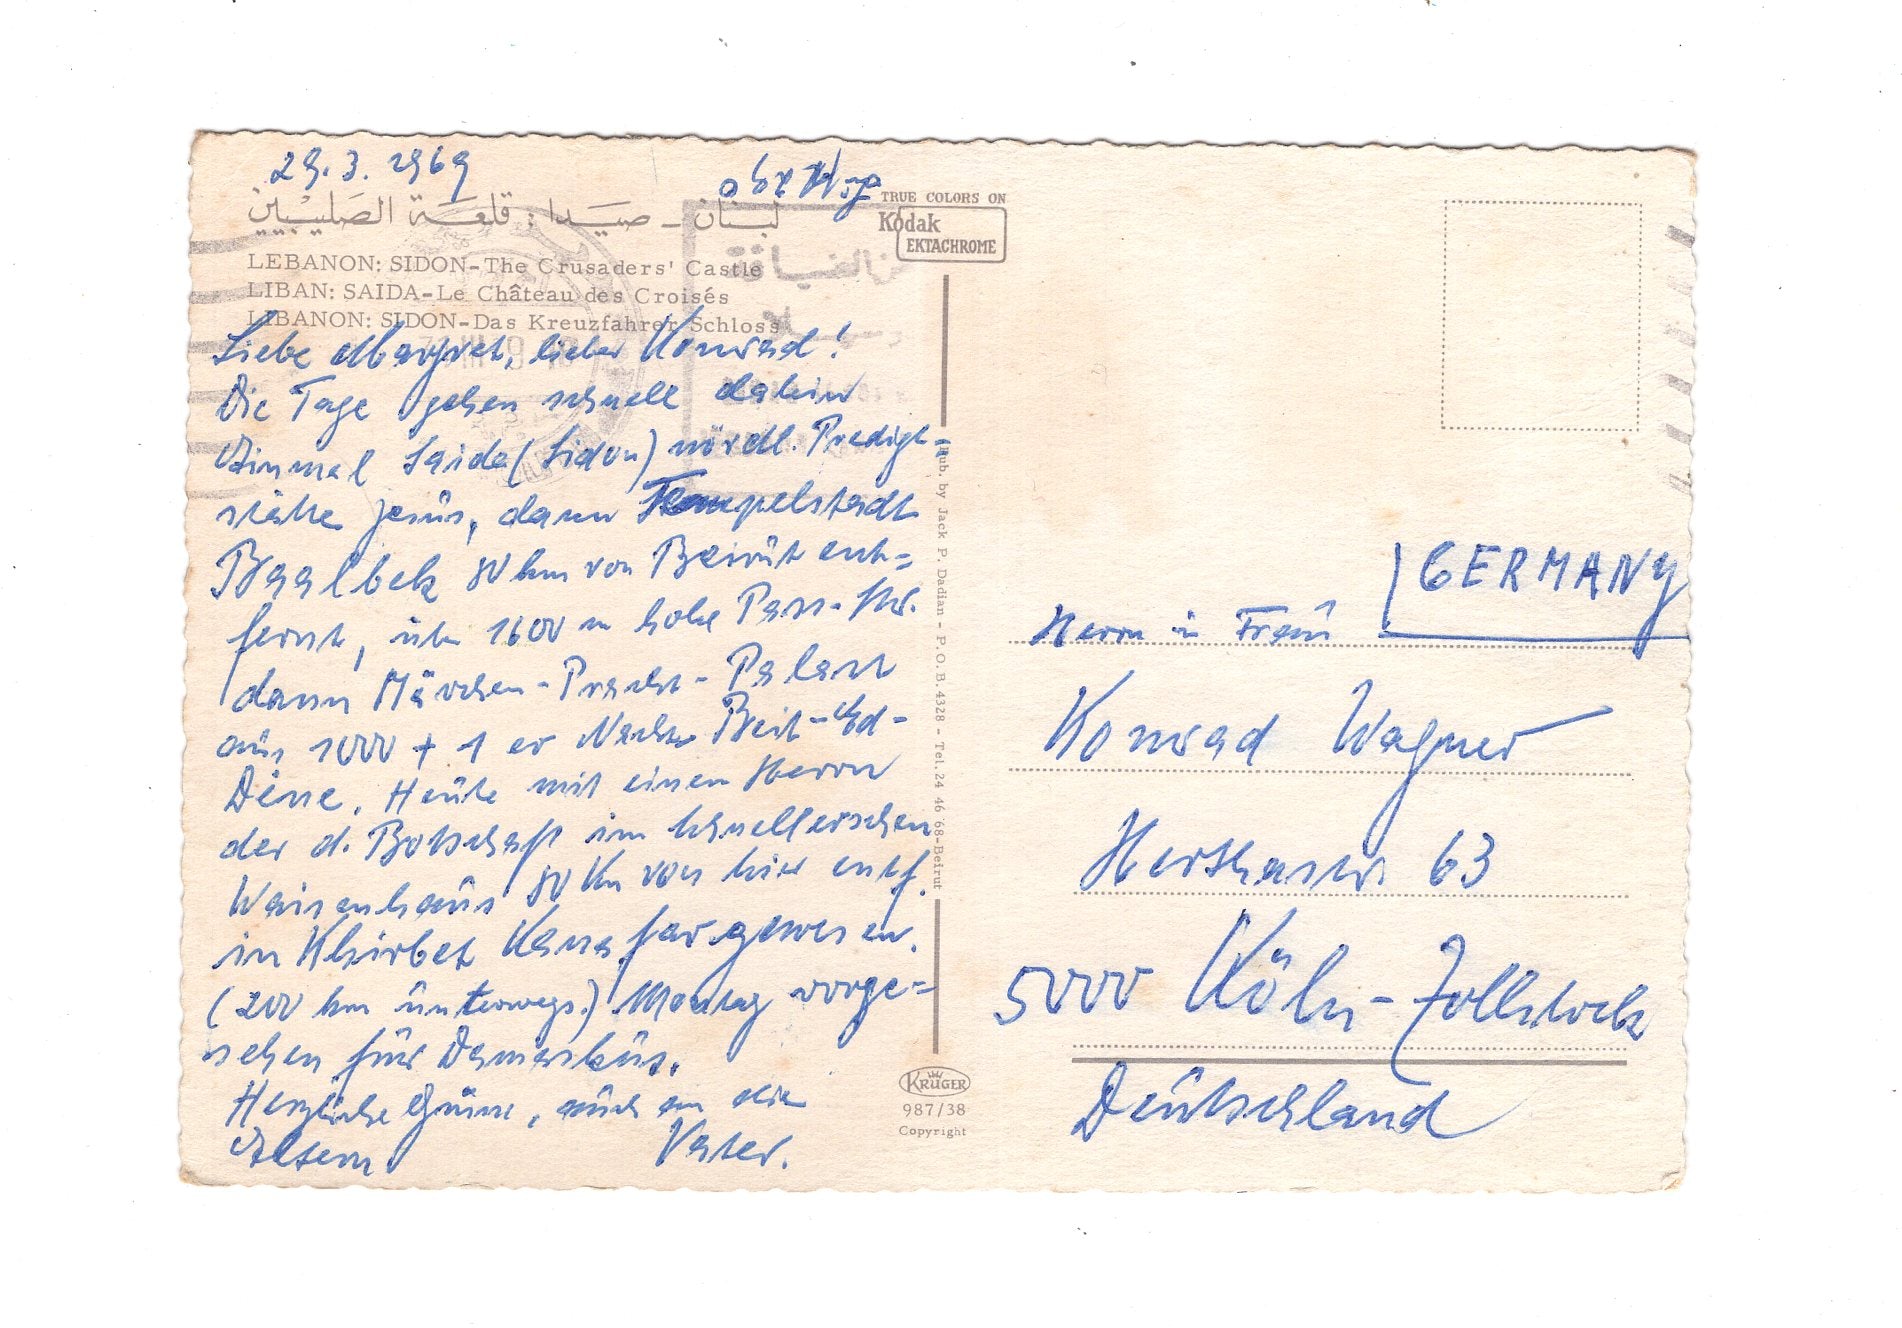 29.3.1969
لبنان - صيدا : قلعة الصليبيين
LEBANON: SIDON-The Crusaders' Castle
LIBAN: SAIDA-Le Château des Croisés
LIBANON: SIDON-Das Kreuzfahrer Schloss
Liebe Margret, lieber Konrad!
Die Tage gehen schnell dahin
Einmal Saida (Sidon) nördl. Predigt=
stätte Jesus, dann Tempelstadt
Baalbek 80 km von Beirut ent=
fernt, über 1600 m hohe Pass-Str.
dann Märchen-Pracht-Palast
aus 1000 + 1 er Nacht Beit-Ed-
Dine. Heute mit einem Herrn
der d. Botschaft im Schnellerschen
Waisenhaus 80 Km von hier entf.
in Khirbet Kanafar gewesen.
(200 km unterwegs.) Montag vorge=
sehen für Damaskus.
Herzliche Grüsse, auch an die
Eltern Vater.
TRUE COLORS ON
Kodak
EKTACHROME
Pub. by Jack P. Dadian - P.O.B. 4328 - Tel. 24 46 68-Beirut
KRÜGER
987/38
Copyright
GERMANY
Herrn u Frau
Konrad Wagner
Herthastr. 63
5000 Köln-Zollstock
Deutschland